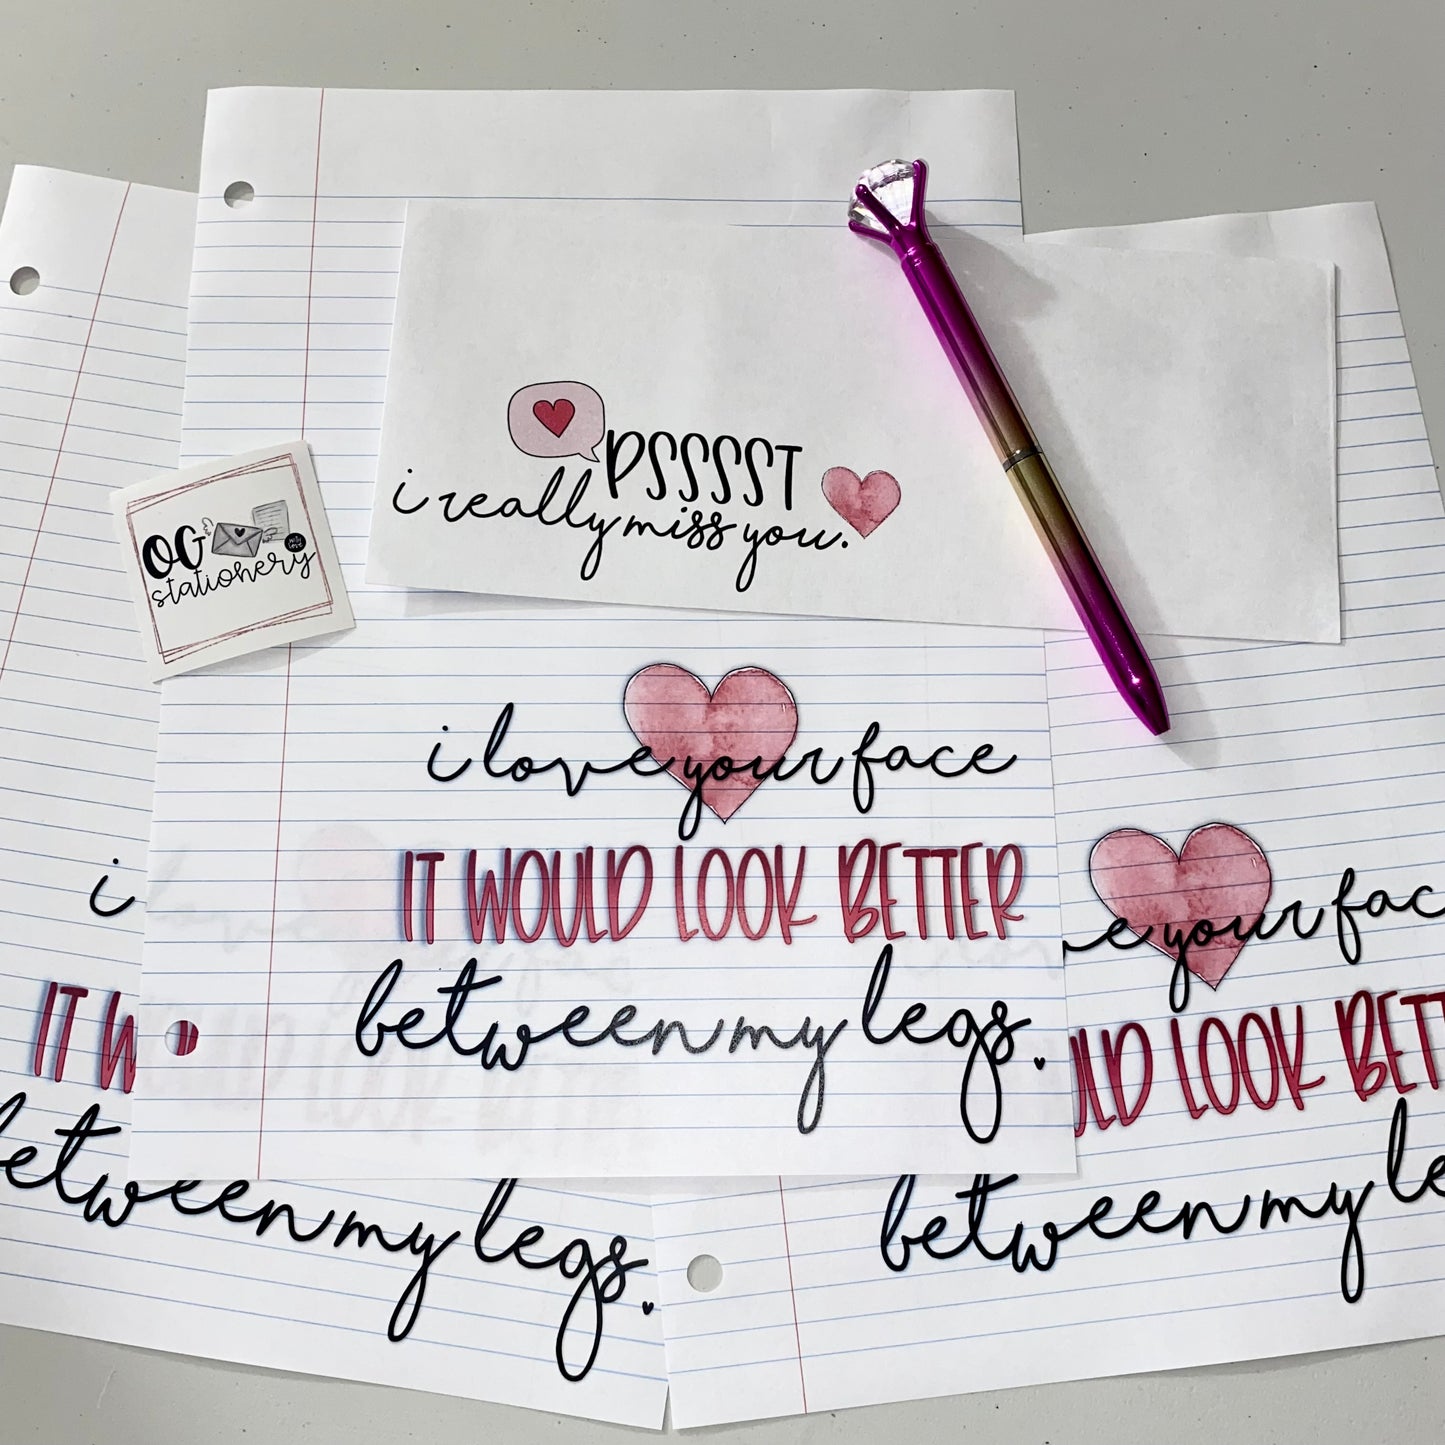 PSSSST
i really miss you.
OG
with love
stationery
i love your face
IT WOULD LOOK BETTER
between my legs.
i
IT W
between my legs.
ve your fac
ULD LOOK BETT
between my le